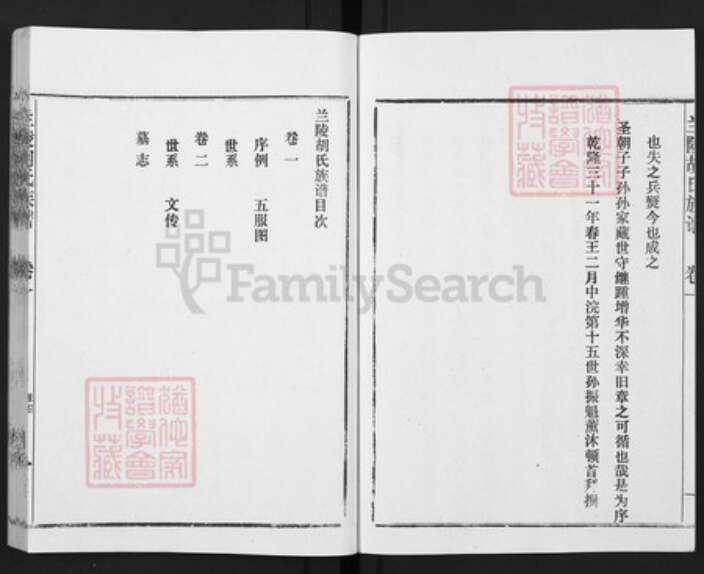 兰陵胡氏族谱 卷一
也失之兵燹今也成之
圣朝子子孙孙家藏世守继踵增华不深幸旧章之可循也哉是为序
乾隆三十一年春王二月中浣第十五世孙振魁薰沐顿首拜撰
兰陵胡氏族谱目次
卷一
序例 五服图
世系
卷二
世系 文传
墓志
FamilySearch